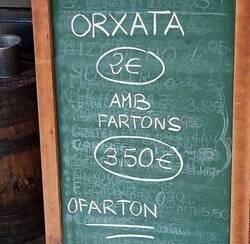 ORXATA
2€
AMB
FARTONS
3.50€
OFARTON